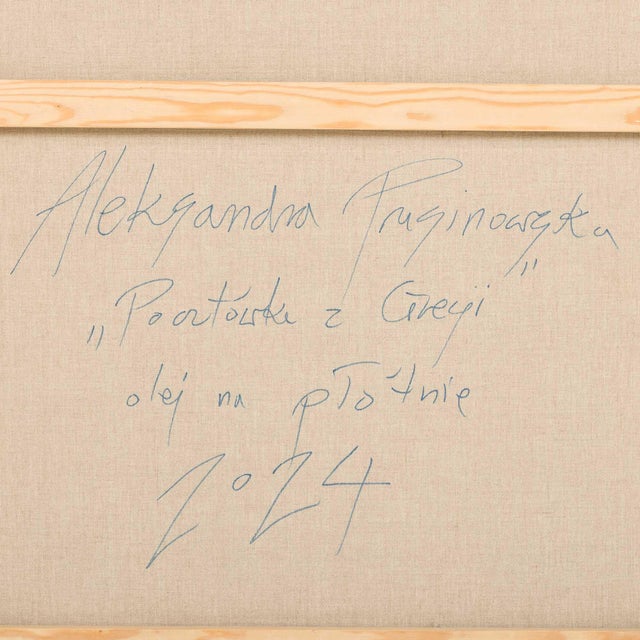 Aleksandra Prusinowska
„Pocztówka z Grecji”
olej na płótnie
2024